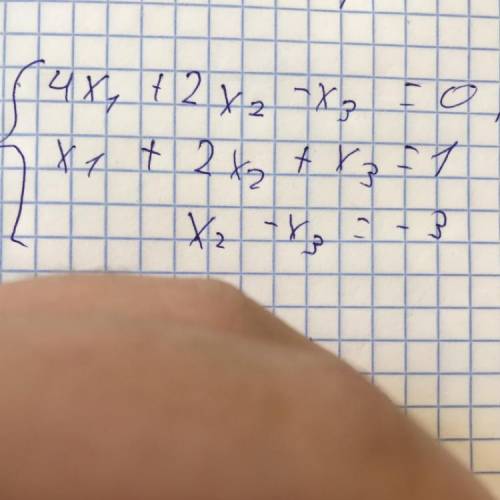 4x₁ + 2x₂ - x₃ = 0,
x₁ + 2x₂ + x₃ = 1
x₂ - x₃ = - 3